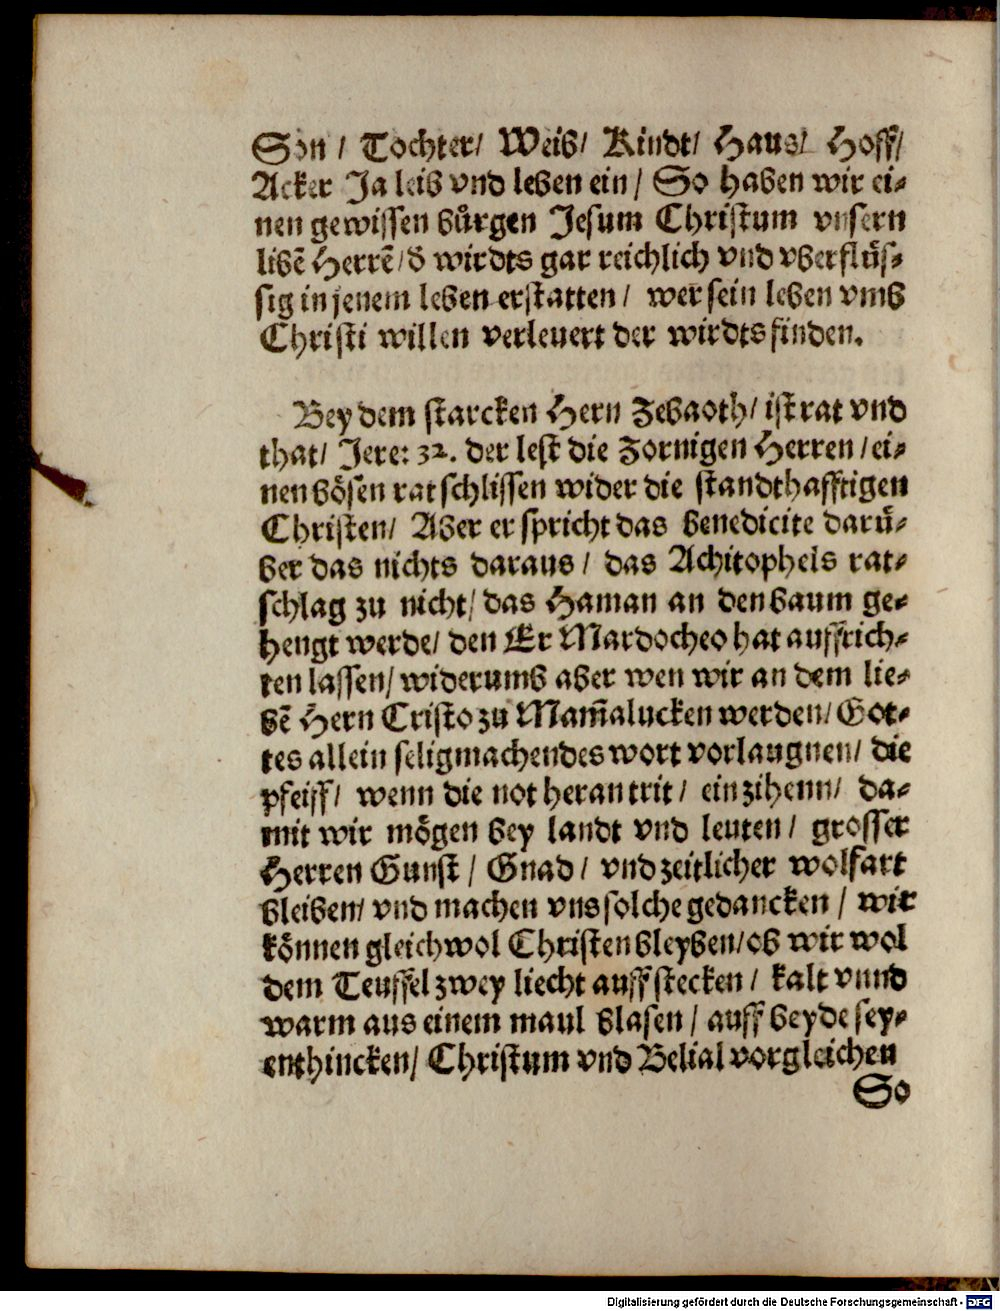 Son / Tochter/ Weib/ Kindt/ Haus/ Hoff/
Acker Ja leib vnd leben ein / So haben wir ei⸗
nen gewissen buͤrgen Jesum Christum vnsern
libē Herrē/ď wirdts gar reichlich vnd vberfluͤs⸗
sig in jenem leben erstatten / wer sein leben vmb
Christi willen verleuert der wirdts finden.
Bey dem starcken Hern Zebaoth/ ist rat vnd
that/ Jere: 32. der lest die Zornigen Herren /ei⸗
nen boͤsen ratschlissen wider die standthafftigen
Christen/ Aber er spricht das benedicite daruͤ⸗
ber das nichts daraus / das Achitophels rat⸗
schlag zu nicht/ das Haman an den baum ge⸗
hengt werde/ den Er Mardocheo hat auffrich⸗
ten lassen/ widerumb aber wen wir an dem lie⸗
bē Hern Cristo zu Mam̄alucken werden/ Got⸗
tes allein seligmachendes wort vorlaugnen/ die
pfeiff/ wenn die not herantrit / einzihenn/ da⸗
mit wir moͤgen bey landt vnd leuten / grosser
Herren Gunst / Gnad / vnd zeitlicher wolfart
bleiben/ vnd machen vns solche gedancken / wir
koͤnnen gleichwol Christen bleyben/ob wir wol
dem Teuffel zwey liecht auff stecken / kalt vnnd
warm aus einem maul blasen / auff beyde sey⸗
enthincken/ Christum vnd Belial vorgleichen
So
Digitalisierung gefördert durch die Deutsche Forschungsgemeinschaft - DFG